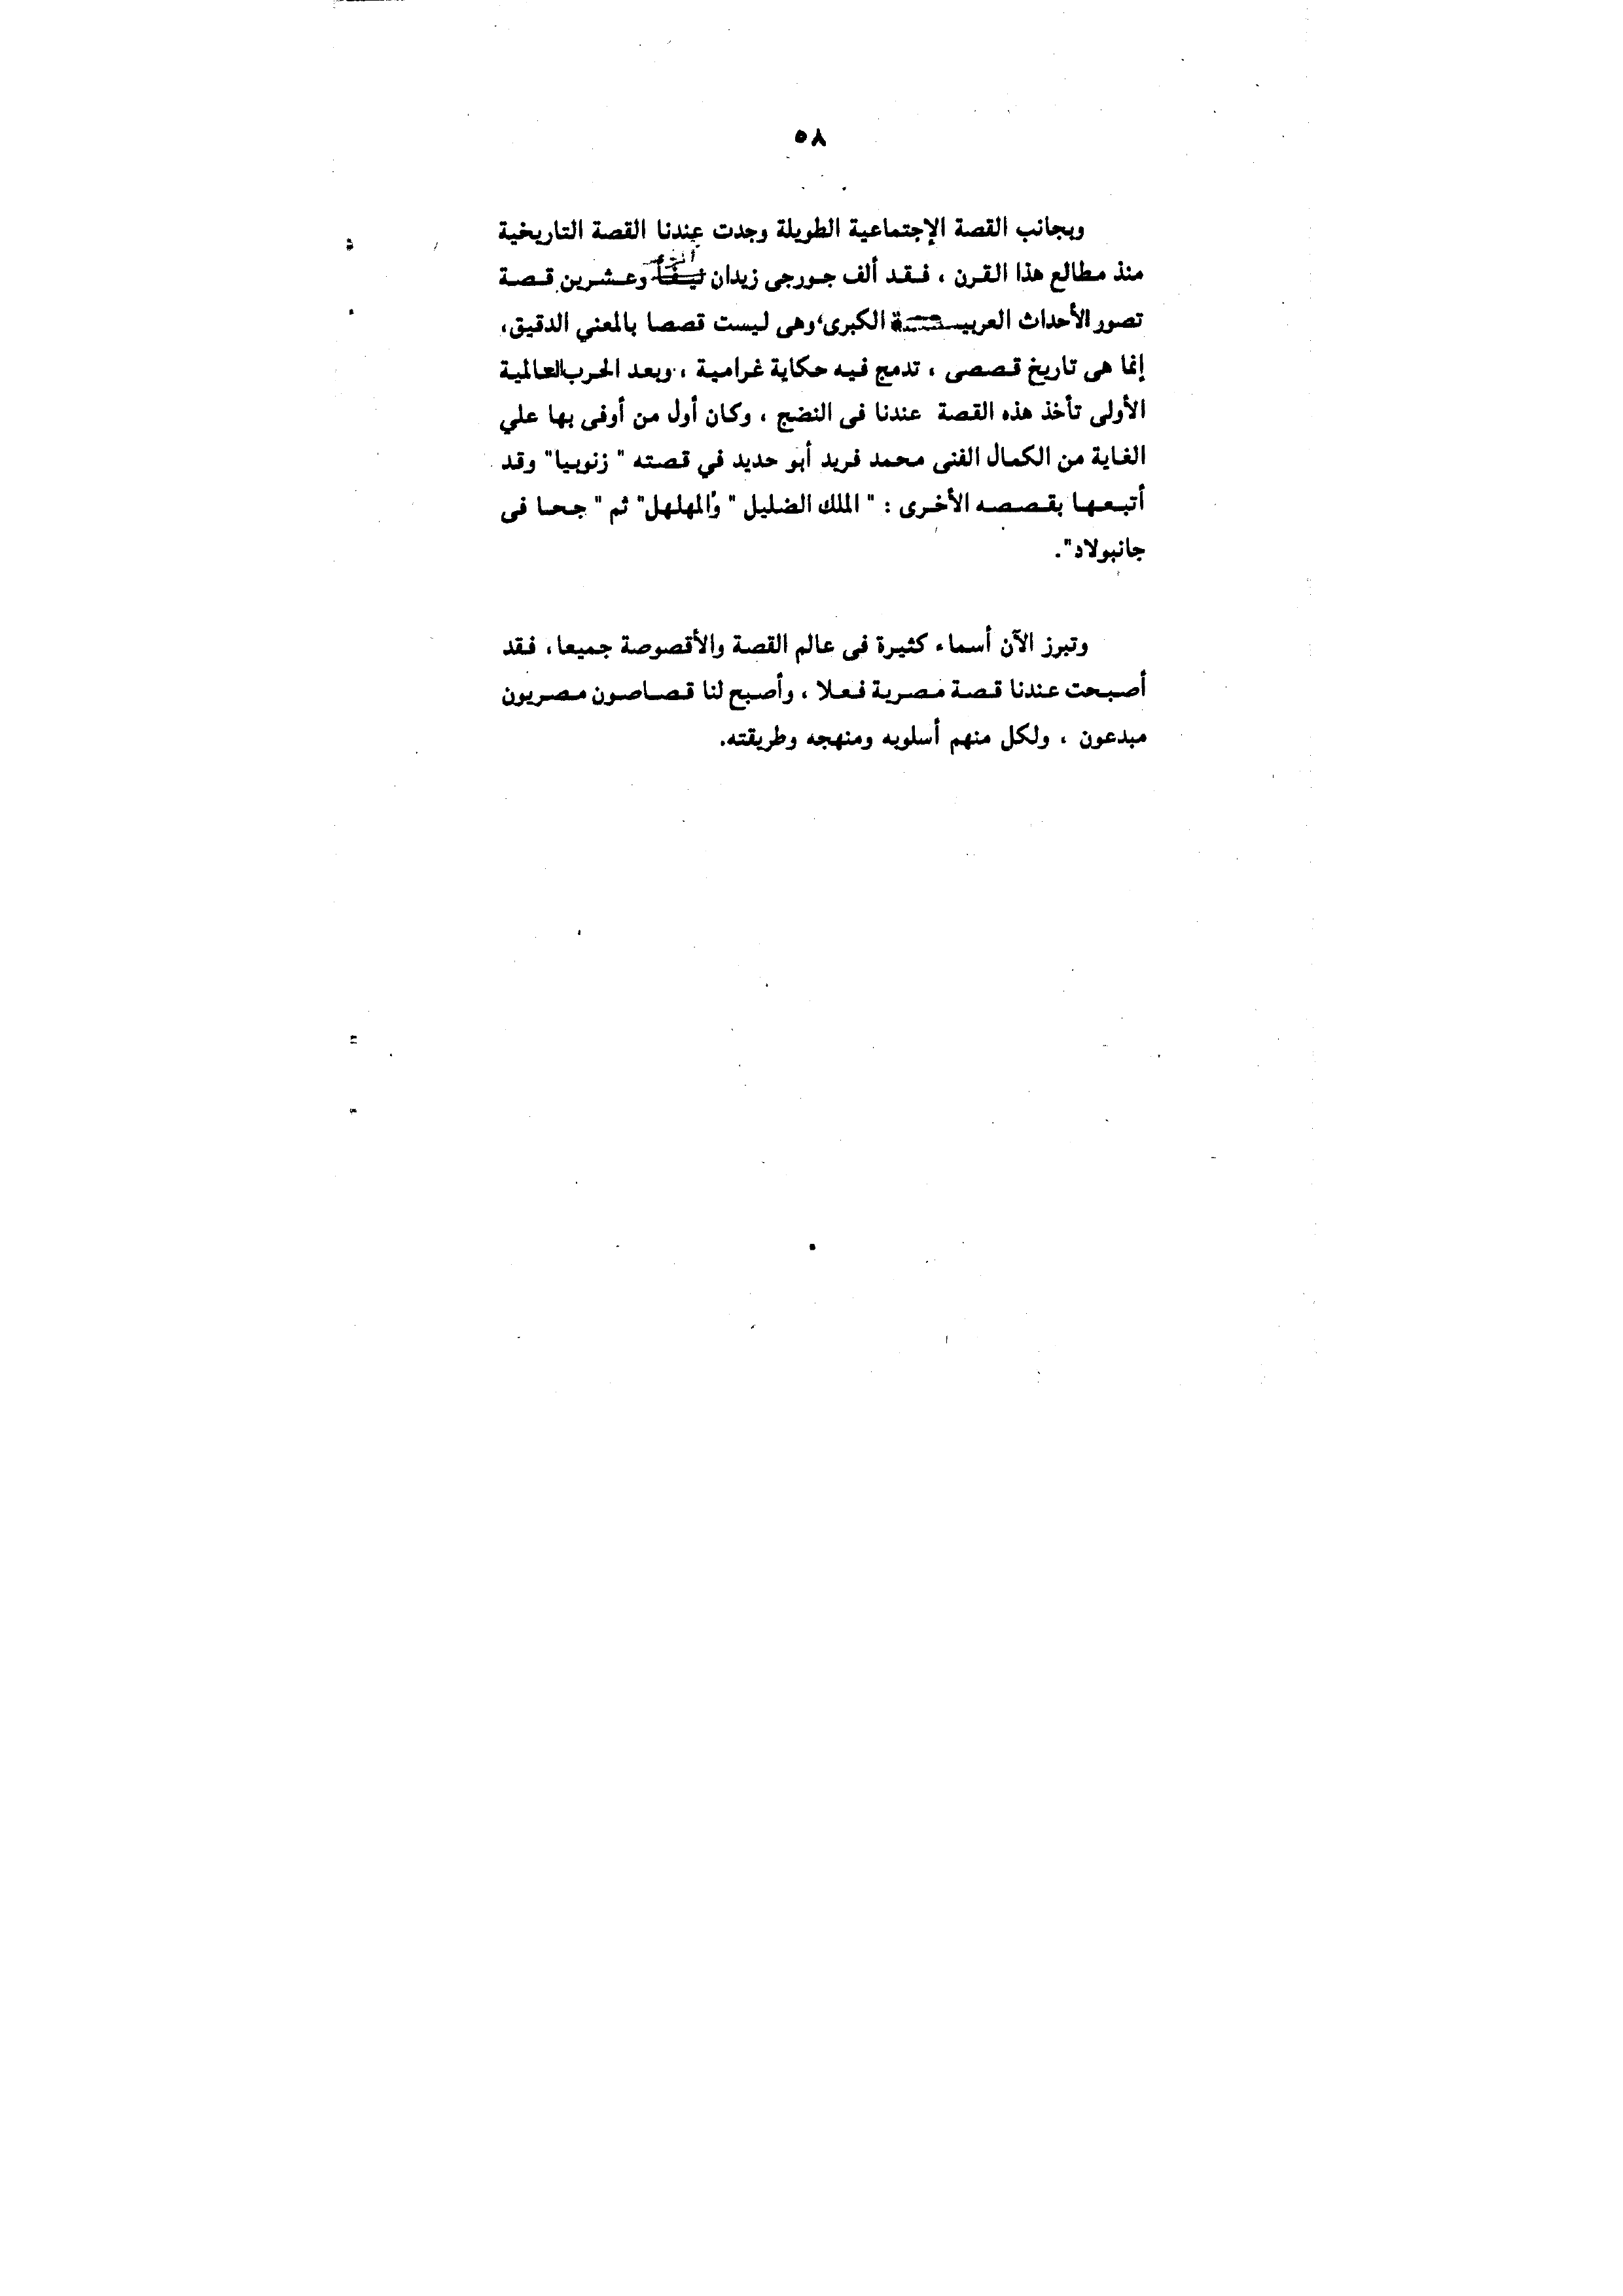 ٥٨
وبجانب القصة الإجتماعية الطويلة وجدت عندنا القصة التاريخية
منذ مطالع هذا القرن ، فقد ألف جورجى زيدان نيفا وعشرين قصة
تصور الأحداث العربية الكبرى، وهى ليست قصصا بالمعني الدقيق،
إنما هى تاريخ قصصى ، تدمج فيه حكاية غرامية ، وبعد الحرب العالمية
الأولى تأخذ هذه القصة عندنا فى النضج ، وكان أول من أوفى بها علي
الغاية من الكمال الفنى محمد فريد أبو حديد في قصته " زنوبيا" وقد
أتبعها بقصصه الأخرى : " الملك الضليل " و"المهلهل" ثم " جحا فى
جانبولاد".
وتبرز الآن أسماء كثيرة فى عالم القصة والأقصوصة جميعا، فقد
أصبحت عندنا قصة مصرية فعلا ، وأصبح لنا قصاصون مصريون
مبدعون ، ولكل منهم أسلوبه ومنهجه وطريقته.